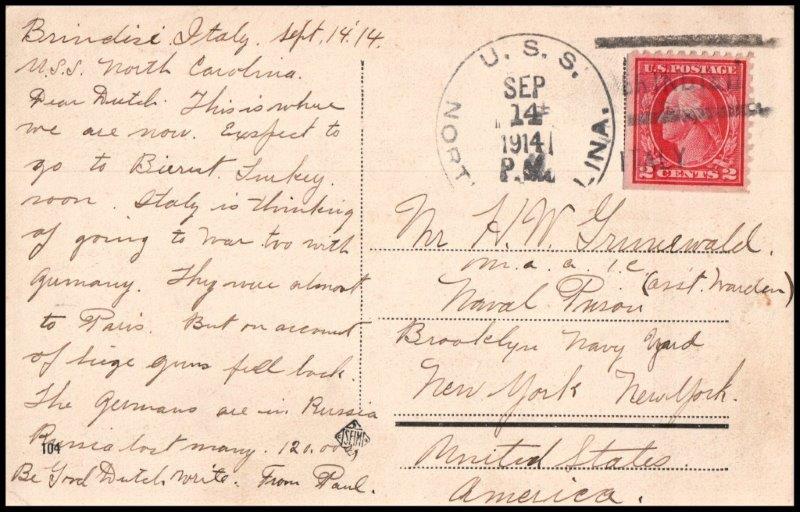 Brindisi Italy. Sept. 14 '14.
U.S.S. North Carolina.
Dear Dutch. This is where
we are now. Exspect to
go to Bierut, Turkey.
soon. Italy is thinking
of going to war too with
Germany. They were almost
to Paris. But on account
of siege guns fell back.
The Germans are in Russia
Russia lost many. 120,000
Be Good Dutch. Write. From Paul.
104
SEIMI
U. S. S.
NORT
LINA.
SEP
14
1914
P.M.
BRINDISI
ITALY
U.S. POSTAGE
2 CENTS 2
Mr H. W. Grunewald.
m. a. a. 1. c
Naval Prison (asst. Warden)
Brooklyn Navy Yard
New York New York.
United States.
America.